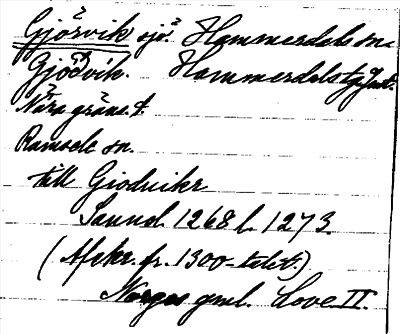 Gjörvik sjö. Hammerdals sn.
Gjödvik. Hammerdals tg Jmt.
Nära gräns t.
Ramsele sn.
till Giodvikr
Sannol. 1268 l. 1273
(Afskr. fr. 1300-talet.)
Norges gml. Love II.